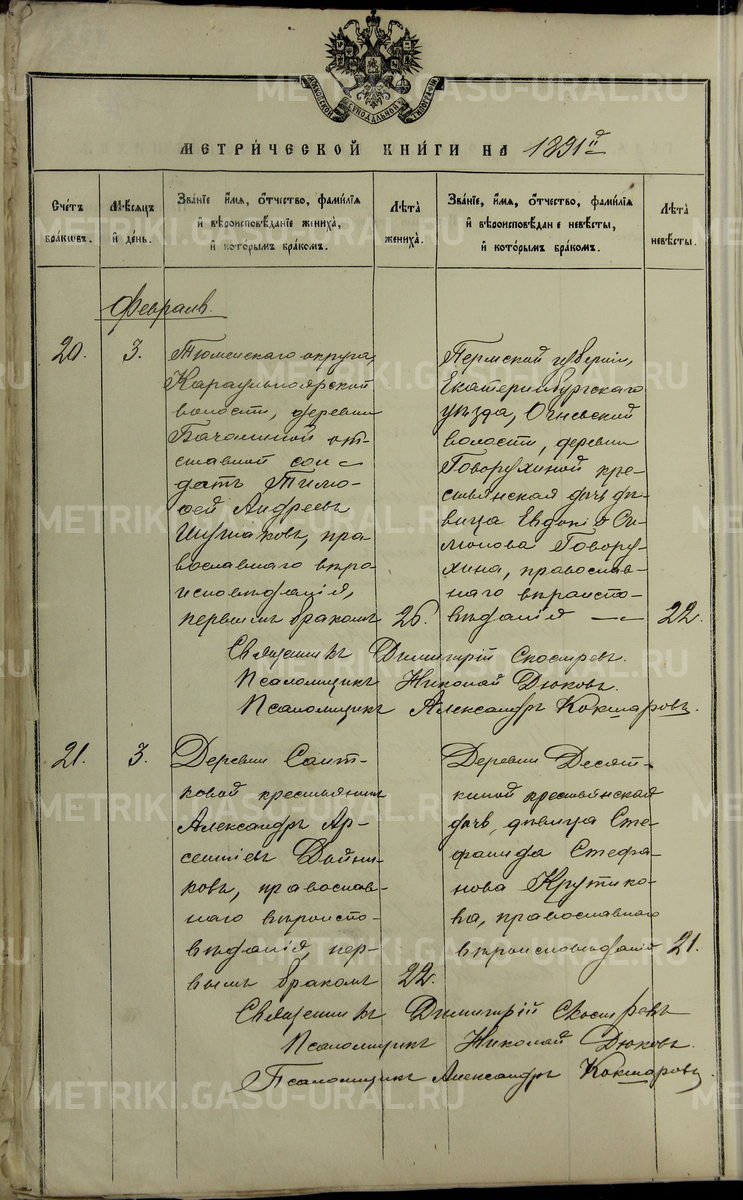 МОСКОВСКОЙ СѴНОДАЛЬНОЙ ТИПОГРАФІИ
МЕТРИ́ЧЕСКОЙ КНИ́ГИ НА 1891й
Сче́тъ бра́кѡвъ.
Мѣ́сяцъ и҆ де́нь.
Зва́нїе, и҆́мя, ѻ҆́тчество, фами́лїя
и҆ вѣроисповѣ́данїе жениха̀,
и҆ кото́рымъ бра́комъ.
Лѣ́та жениха̀.
Зва́нїе, и҆́мя, ѻ҆́тчество, фами́лїя
и҆ вѣроисповѣ́дан е невѣ́сты,
и҆ кото́рымъ бра́комъ.
Лѣ́та невѣ́сты.
Февраль.
20.
3.
Тюменскаго округа,
Караульноярской
волости, деревни
ставной сол-
датъ Тимо-
ѳей Андреевъ
пра-
вославнаго вѣро
исповѣданія,
первымъ бракомъ
26.
Пермской губерніи,
Екатеринбургскаго
уѣзда, Огневской
волости, деревни
Говорухиной кре-
стьянская дочь дѣ-
вица Евдокія Си-
монова Говору-
хина, православ-
наго вѣроиспо-
вѣданія —
22.
Священникъ Димитрій Скосыревъ.
Псаломщикъ Николай Дюковъ.
Псаломщикъ Александръ Кокшаровъ.
21.
3.
Деревни Саит-
ковой крестьянинъ
Александръ Ар-
сеніевъ Дойни-
ковъ, православ-
наго вѣроиспо-
вѣданія, пер-
вымъ бракомъ
22.
Деревни Десят-
киной крестьянская
дочь, дѣвица Сте-
фанида Стефа-
нова Крутико-
ва, православнаго
вѣроисповѣданія
21.
Священникъ Димитрій Скосыревъ
Псаломщикъ Николай Дюковъ.
Псаломщикъ Александръ Кокшаровъ.
METRIKI.GASO-URAL.RU